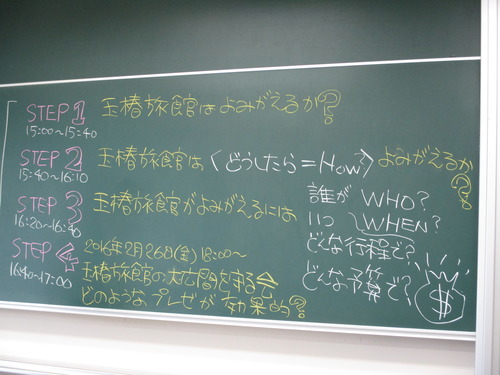 STEP 1 玉椿旅館はよみがえるか?
15:00~15:40
STEP 2 玉椿旅館は〈どうしたら=How?〉よみがえるか?
15:40~16:10
STEP 3 玉椿旅館がよみがえるには
16:20~16:40
誰が WHO?
いつ WHEN?
どんな行程で?
どんな予算で?
$
STEP 4 2016年2月26日(金) 18:00~
16:40~17:00
玉椿旅館の大広間を守る会
どのようなプレゼが効果的?